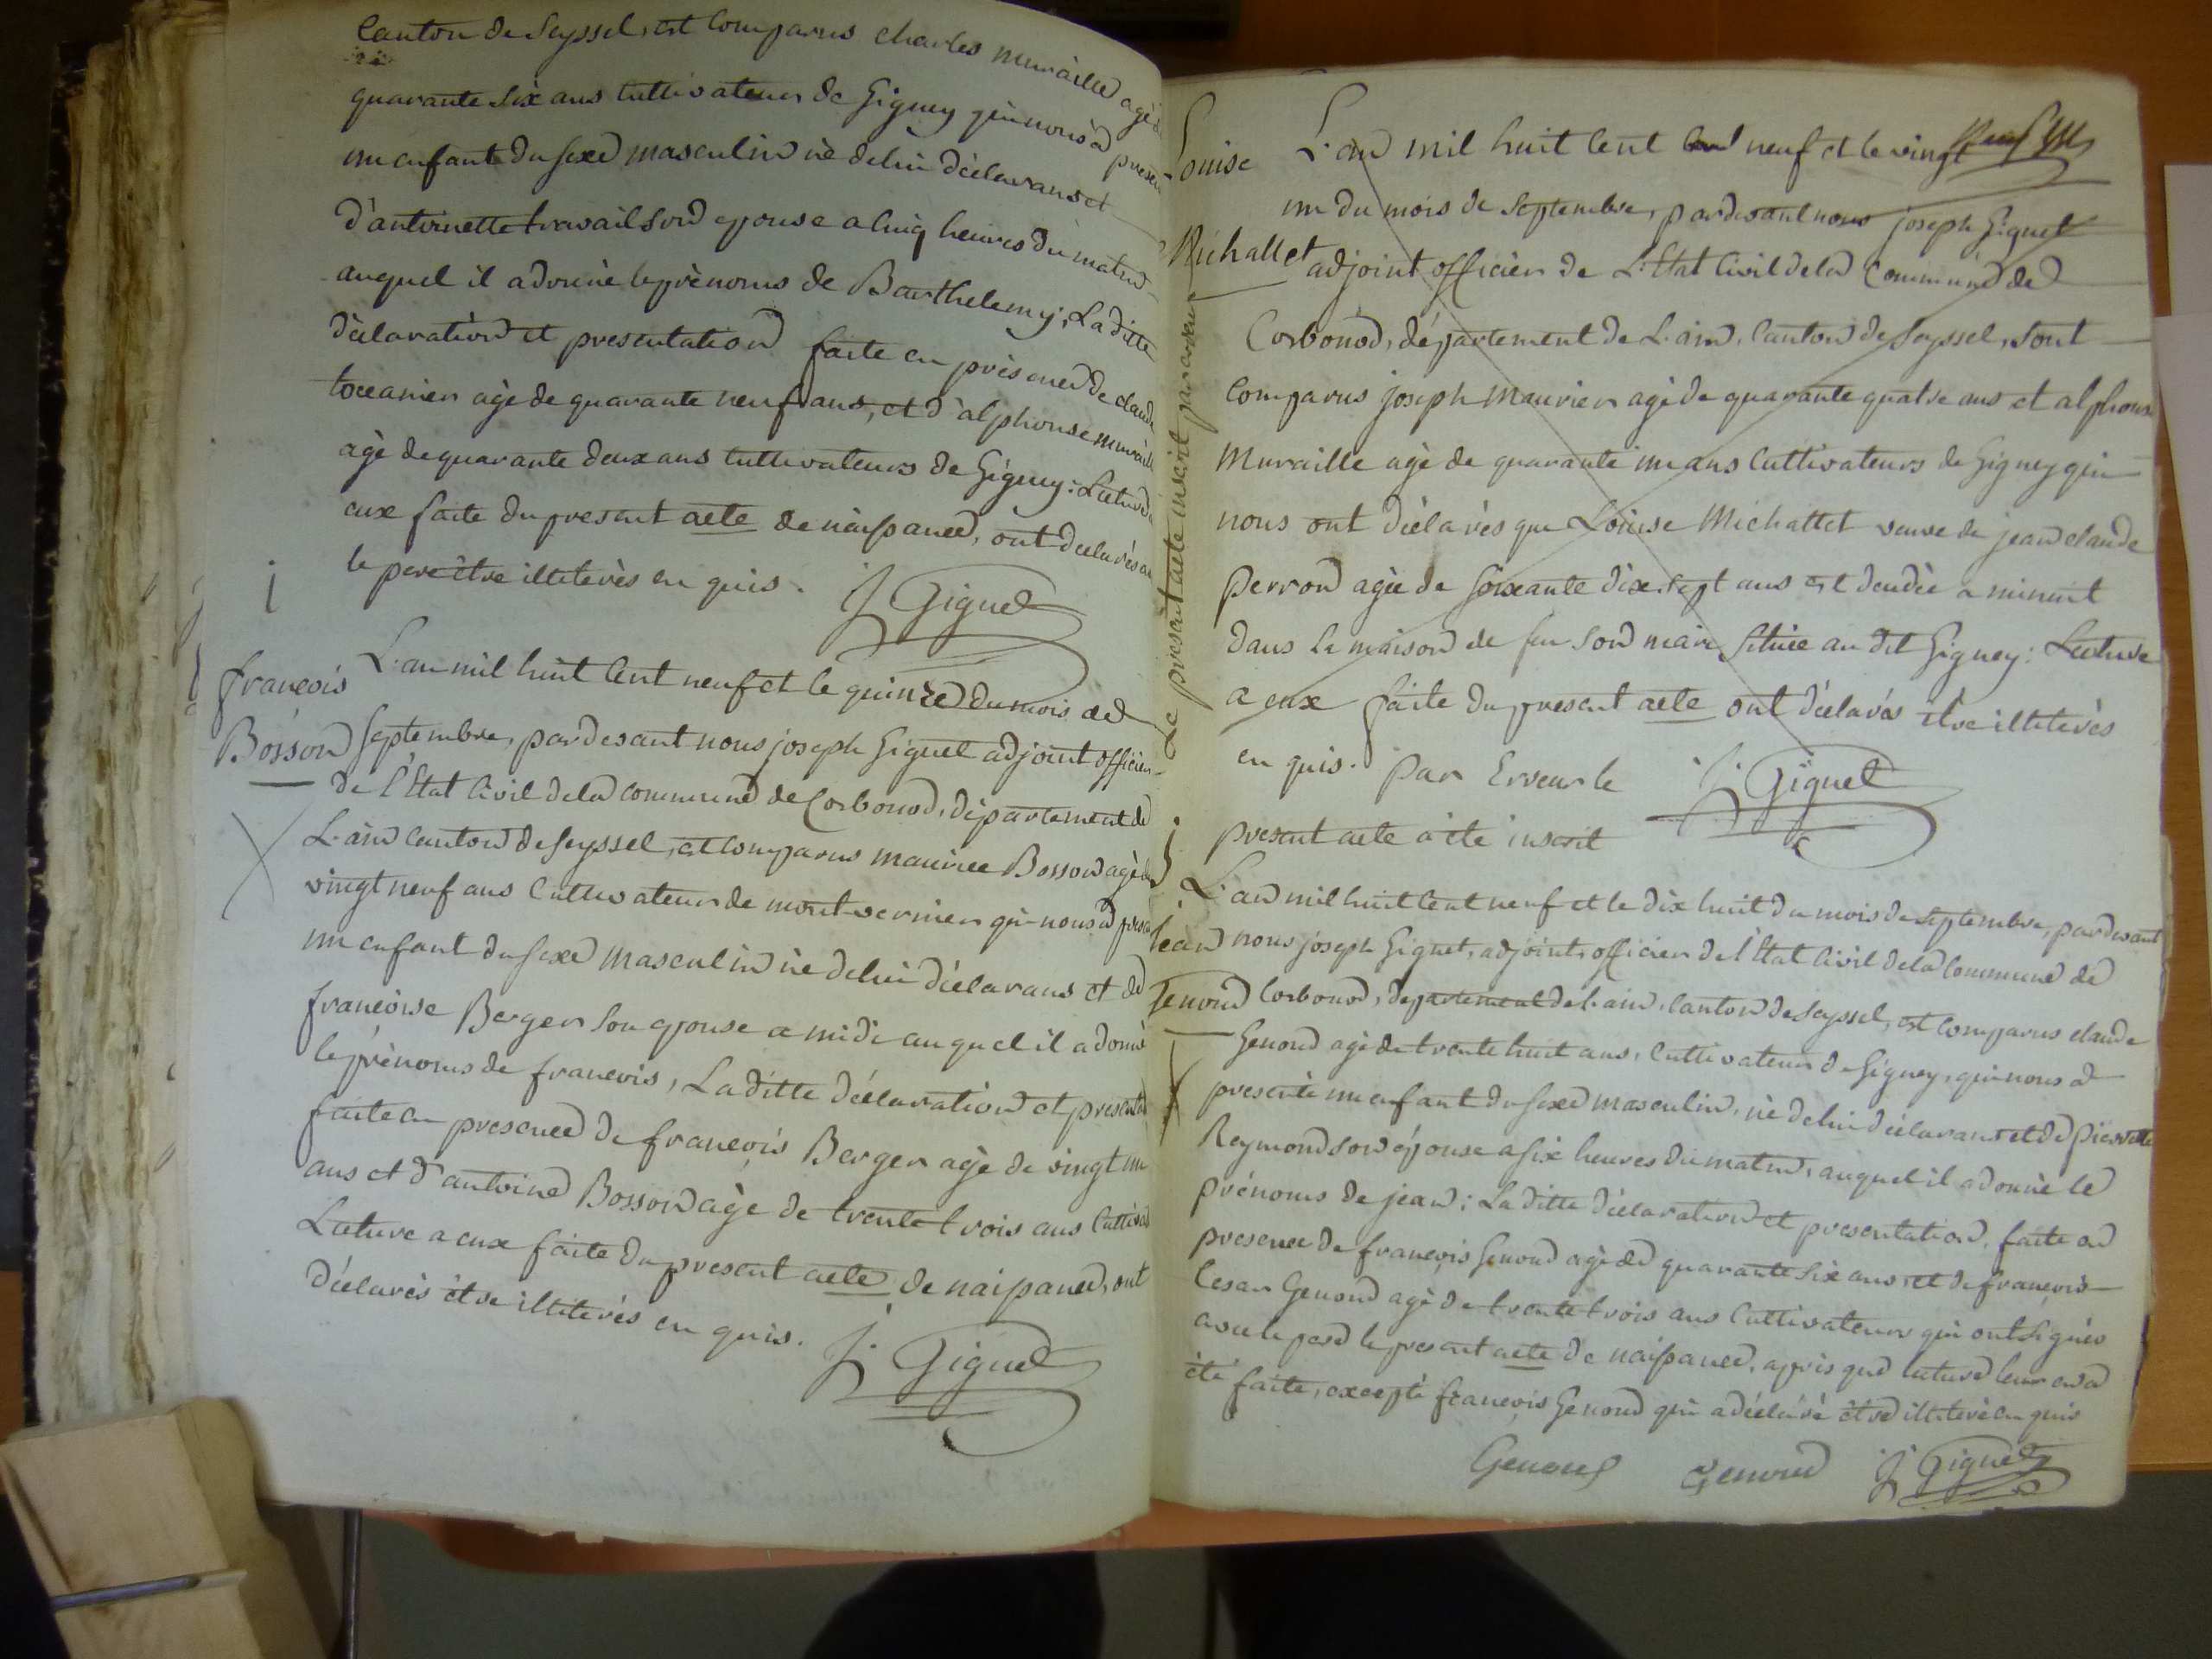 Canton de Seyssel, est Comparus charles muraille agé de
quarante six ans Cultivateur de Gigney qui nous a presen
un enfant du sexe masculin né de lui déclarans et
d'antoinette travail son epouse a cinq heures du matin
auquel il a donné le prénoms de Barthelemy; La ditte
déclaration et presentation faite en présence de claude
agé de quarante neuf ans, et d'alphonse muraille
agé de quarante deux ans Cultivateurs de Gigney: Lecture a
eux faite du present acte de naissance, ont déclarés a
le pere être illiterés en quis. J. Giguet
françois
Bosson
L'an mil huit Cent neuf et le quinze du mois de
Septembre, pardevant nous joseph Giguet adjoint officier
de l'État Civil de la commune de Corbonod, département de
L'ain Canton de Seyssel, est Comparus maurice Bosson agé de
vingt neuf ans Cultivateur de mont-vernier qui nous a presen
un enfant du sexe masculin né de lui déclarans et de
françoise Berger son epouse a midi auquel il a donné
le prénoms de françois, La ditte déclaration et presenta
faite en presence de françois Berger agé de vingt un
ans et d'antoine Bosson agé de trente trois ans Cultivat
Lecture a eux faite du present acte de naissance, ont
déclarés être illiterés en quis. J. Giguet
Louise
Michallet
Le present acte inscrit par erreur
L'an mil huit Cent neuf et le vingt
un du mois de Septembre, pardevant nous joseph Giguet
adjoint officier de L'État Civil de la Commune de
Corbonod, département de L'ain, Canton de Seyssel, sont
Comparus joseph Maurier agé de quarante quatre ans et alphonse
Muraille agé de quarante un ans Cultivateurs de Gigney qui
nous ont déclarés que Louise Michallet veuve de jean claude
Perron agée de soixante dix sept ans est décédée a minuit
dans la maison de feu son mari située au dit Gigney: Lecture
a eux faite du present acte ont déclarés être illiterés
en quis. Par Erreur le J. Giguet
present acte a été inscrit
jean
Genond
L'an mil huit Cent neuf et le dix huit du mois de Septembre, pardevant
nous joseph Giguet, adjoint, officier de l'État Civil de la Commune de
Corbonod, département de L'ain, Canton de Seyssel, est Comparus claude
Genond agé de trente huit ans, Cultivateur de Gigney, qui nous a
presenté un enfant du sexe masculin, né de lui déclarans et de Pierrette
Reymond son épouse a six heures du matin, auquel il a donné le
prénoms de jean; La ditte déclaration et presentation, faite en
presence de françois Genond agé de quarante six ans, et de françois
Cesar Genond agé de trente trois ans Cultivateurs qui ont signés
avec le pere le present acte de naissance, après que lecture leur en a
été faite, excepté françois Genond qui a déclaré être illiteré en quis
Genond Genond J. Giguet